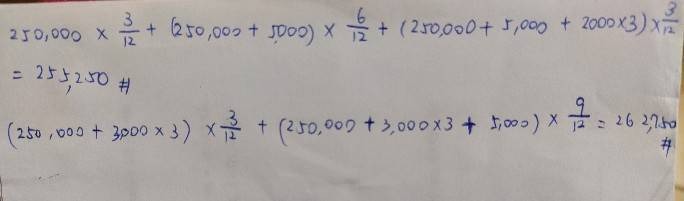 250,000 × 3/12 + (250,000 + 5,000) × 6/12 + (250,000 + 5,000 + 2000×3) × 3/12
= 255,250 #
(250,000 + 3,000 × 3) × 3/12 + (250,000 + 3,000×3 + 5,000) × 9/12 = 262,750
#